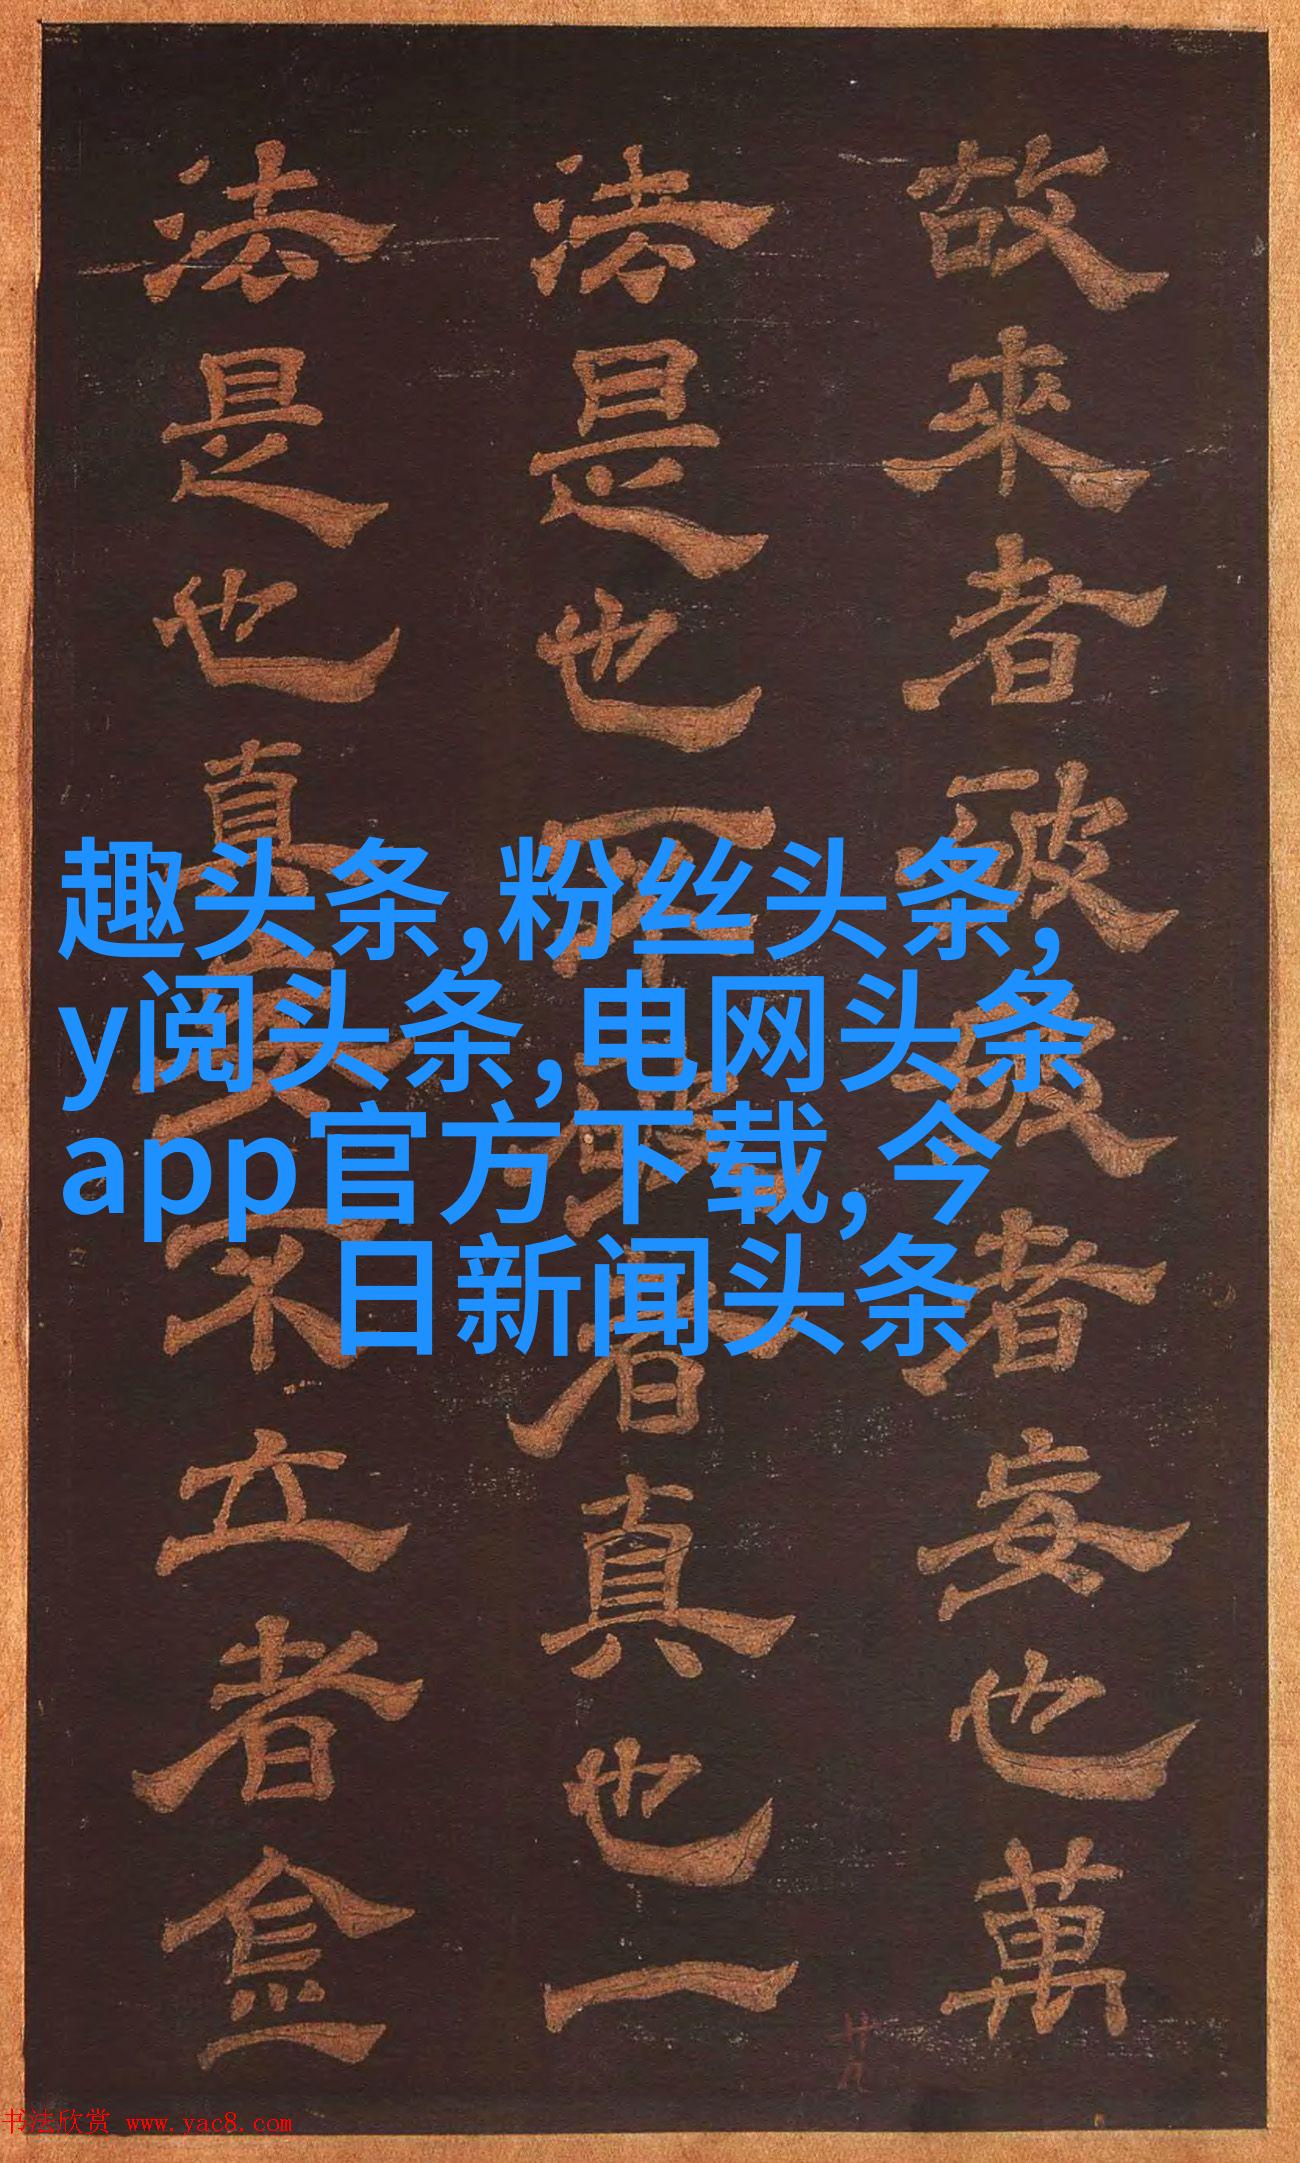 故來者破者妄也萬
法是也者真也一
法是也真不立者
趣头条,粉丝头条,
y阅头条,电网头条
app官方下载,今
日新闻头条
廿九
书法欣赏 www.yac8.com